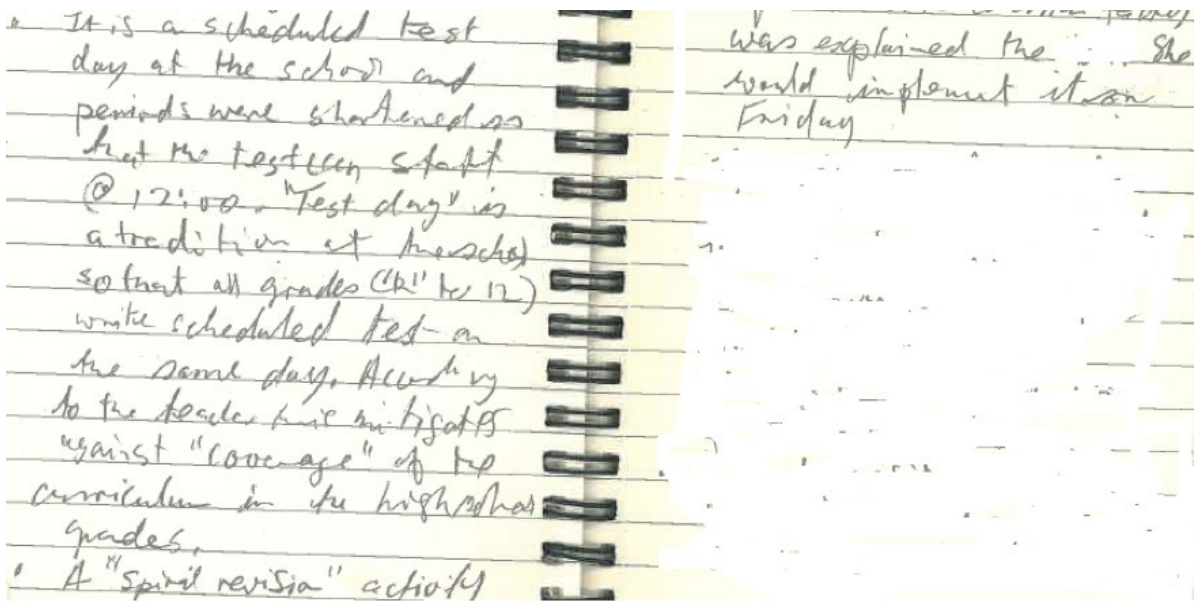 • It is a scheduled test
day at the school and
periods were shortened so
that the test can start
@ 12:00. "Test day" is
a tradition at the school
so that all grades ("R" to 12)
write scheduled test on
the same day. According
to the teacher this mitigates
against "coverage" of the
curriculum in the high school
grades.
• A "spiral revision" activity
was explained the She
would implement it on
Friday